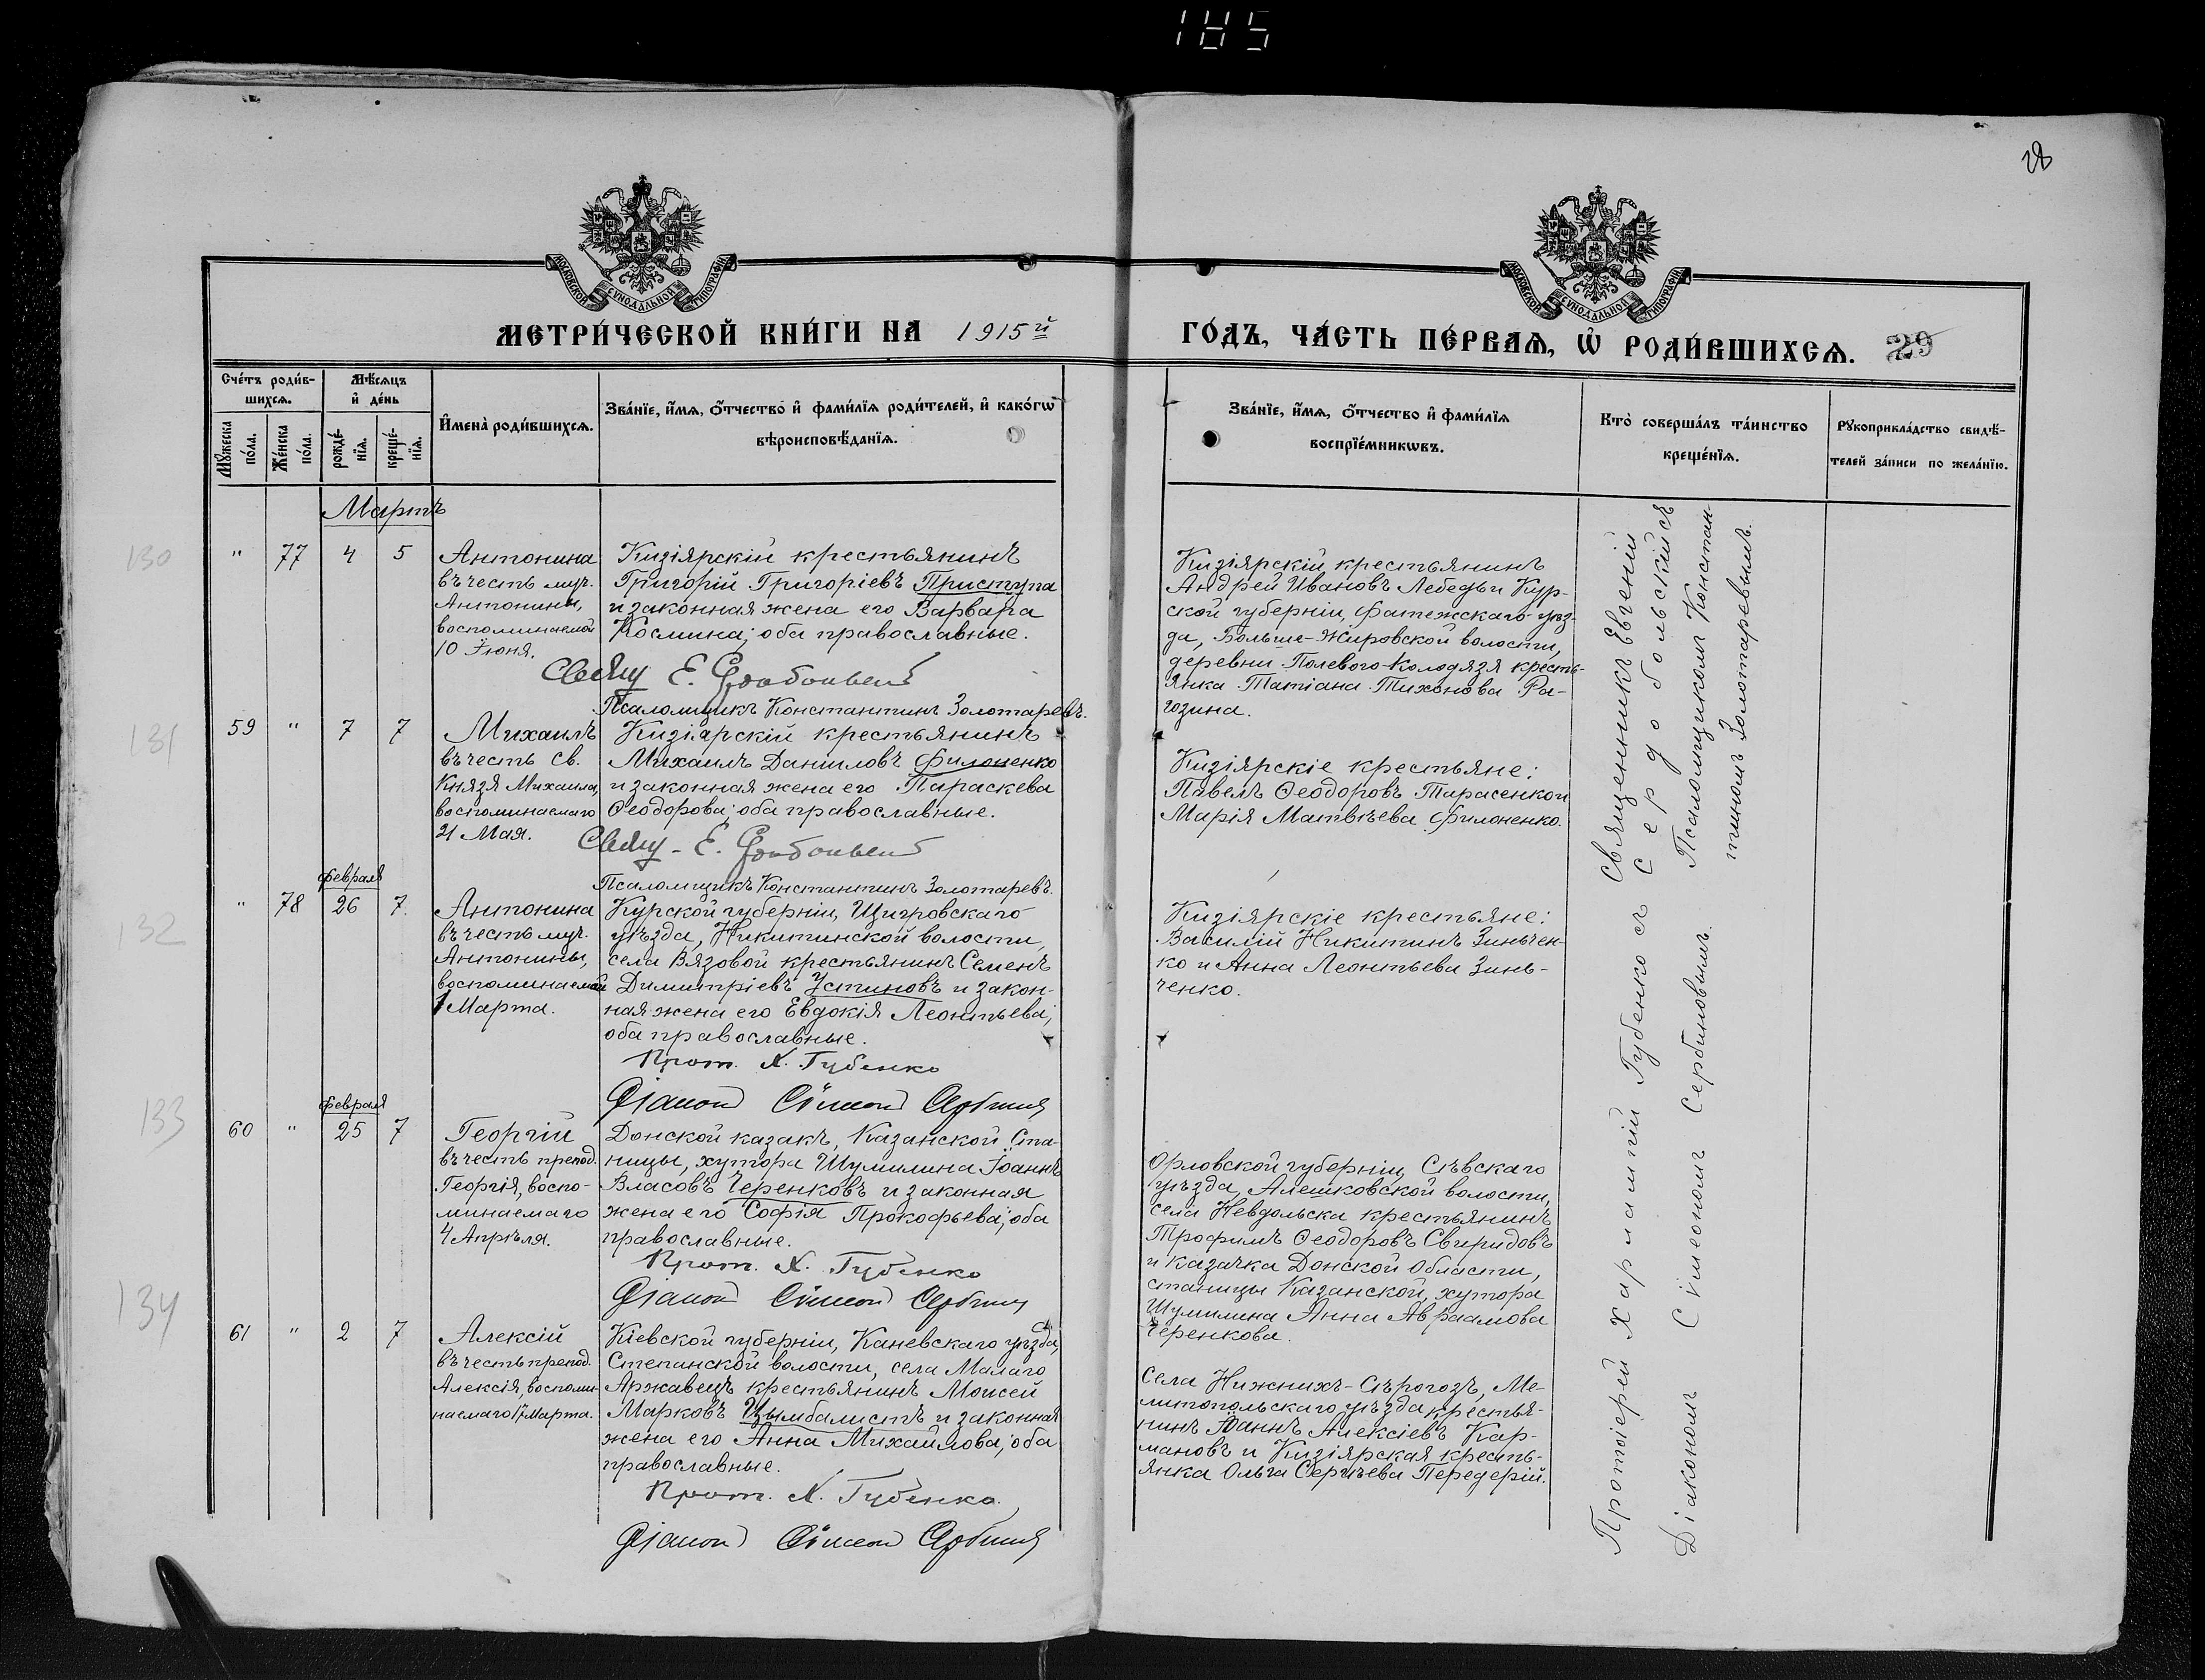 185
28
МОСКОВСКОЙ СѴНОДАЛЬНОЙ ТИПОГРАФІИ
МОСКОВСКОЙ СѴНОДАЛЬНОЙ ТИПОГРАФІИ
МЕТРИ́ЧЕСКОЙ КНИ́ГИ НА 1915й
ГО́ДЪ, ЧА́СТЬ ПЕ́РВАѦ, Ѡ҆ РОДИ́ВШИХСѦ. 29
Сче́тъ роди́в-
шихсѧ.
Мꙋ́жеска по́ла.
Же́нска по́ла.
Мѣ́сѧцъ
и҆ де́нь
рожде́-
нїѧ.
креще́-
нїѧ.
И҆мена̀ роди́вшихсѧ.
Зва́нїе, и҆́мѧ, ѻ҆́тчество и҆ фами́лїѧ роди́телей, и҆ како́гѡ
вѣроисповѣ́данїѧ.
Зва́нїе, и҆́мѧ, ѻ҆́тчество и҆ фами́лїѧ
воспрїе́мникѡвъ.
Кто̀ соверша́лъ та́инство
креще́нїѧ.
Рꙋкоприкла́дство свидѣ́-
телей за́писи по жела́нїю.
Мартъ
130
" 77 4 5
Антонина
въ честь муч.
Антонины,
воспоминаемой
10 Іюня.
Кизіярскій крестьянинъ
Григорій Григоріевъ Приступа
и законная жена его Варвара
Космина; оба православные.
Свящ Е. Сердобольскій
Псаломщикъ Константинъ Золотаревъ.
Кизіярскій крестьянинъ
Андрей Ивановъ Лебедь и Кур-
ской губерніи, Фатежскаго уѣз-
да, Больше-Жировской волости,
деревни Полевого-Колодязя кресть-
янка Татіана Тихонова Ра-
гозина.
131
59 " 7 7
Михаилъ
въ честь св.
Князя Михаила,
воспоминаемаго
21 Мая.
Кизіярскій крестьянинъ
Михаилъ Даніиловъ Филоненко
и законная жена его Параскева
Ѳеодорова; оба православные.
Свящ - Е. Сердобольскій
Псаломщикъ Константинъ Золотаревъ.
Кизіярскіе крестьяне:
Павелъ Ѳеодоровъ Тарасенко и
Марія Матвѣева Филоненко.
132
Февраля
" 78 26 7.
Антонина
въ честь муч.
Антонины,
воспоминаемой
1 Марта.
Курской губерніи, Щигровскаго
уѣзда, Никитинской волости,
села Вязовой крестьянинъ Семенъ
Димитріевъ Устиновъ и закон-
ная жена его Евдокія Леонтьева;
оба православные.
Прот. Х. Губенко
Діаконъ Сѵмеонъ Сербинъ
Кизіярскіе крестьяне:
Василій Никитинъ Зиньчен-
ко и Анна Леонтьева Зинь-
ченко.
133
Февраля
60 " 25 7
Георгій
въ честь препод.
Георгія, воспо-
минаемаго
4 Апрѣля.
Донской казакъ, Казанской Ста-
ницы, хутора Шумилина Іоаннъ
Власовъ Черенковъ и законная
жена его Софія Прокофьева; оба
православные.
Прот. Х. Губенко
Діаконъ Сѵмеонъ Сербинъ
Орловской губерніи, Сѣвскаго
уѣзда, Алешковской волости,
села Невдольска крестьянинъ
Трофимъ Ѳеодоровъ Свиридовъ
и казачка Донской Области,
станицы Казанской, хутора
Шумилина Анна Авраамова
Черенкова.
134
61 " 2 7
Алексій
въ честь препод.
Алексія, воспоми-
наемаго 17 Марта.
Кіевской губерніи, Каневскаго уѣзда,
Степанской волости, села Малаго
Аржавецъ крестьянинъ Моисей
Марковъ Цымбалистъ и законная
жена его Анна Михайлова; оба
православные.
Прот. Х. Губенко.
Діаконъ Сѵмеонъ Сербинъ
Села Нижнихъ-Сѣрогозъ, Ме-
литопольскаго уѣзда крестья-
нинъ Іоаннъ Алексіевъ Кар-
мановъ и Кизіярская кресть-
янка Ольга Сергѣева Передерій.
Протоіерей Харлампій Губенко съ
Діакономъ Сѵмеономъ Сербиновымъ.
Священникъ Евгеній
Сердобольскій съ
Псаломщикомъ Констан-
тиномъ Золотаревымъ.